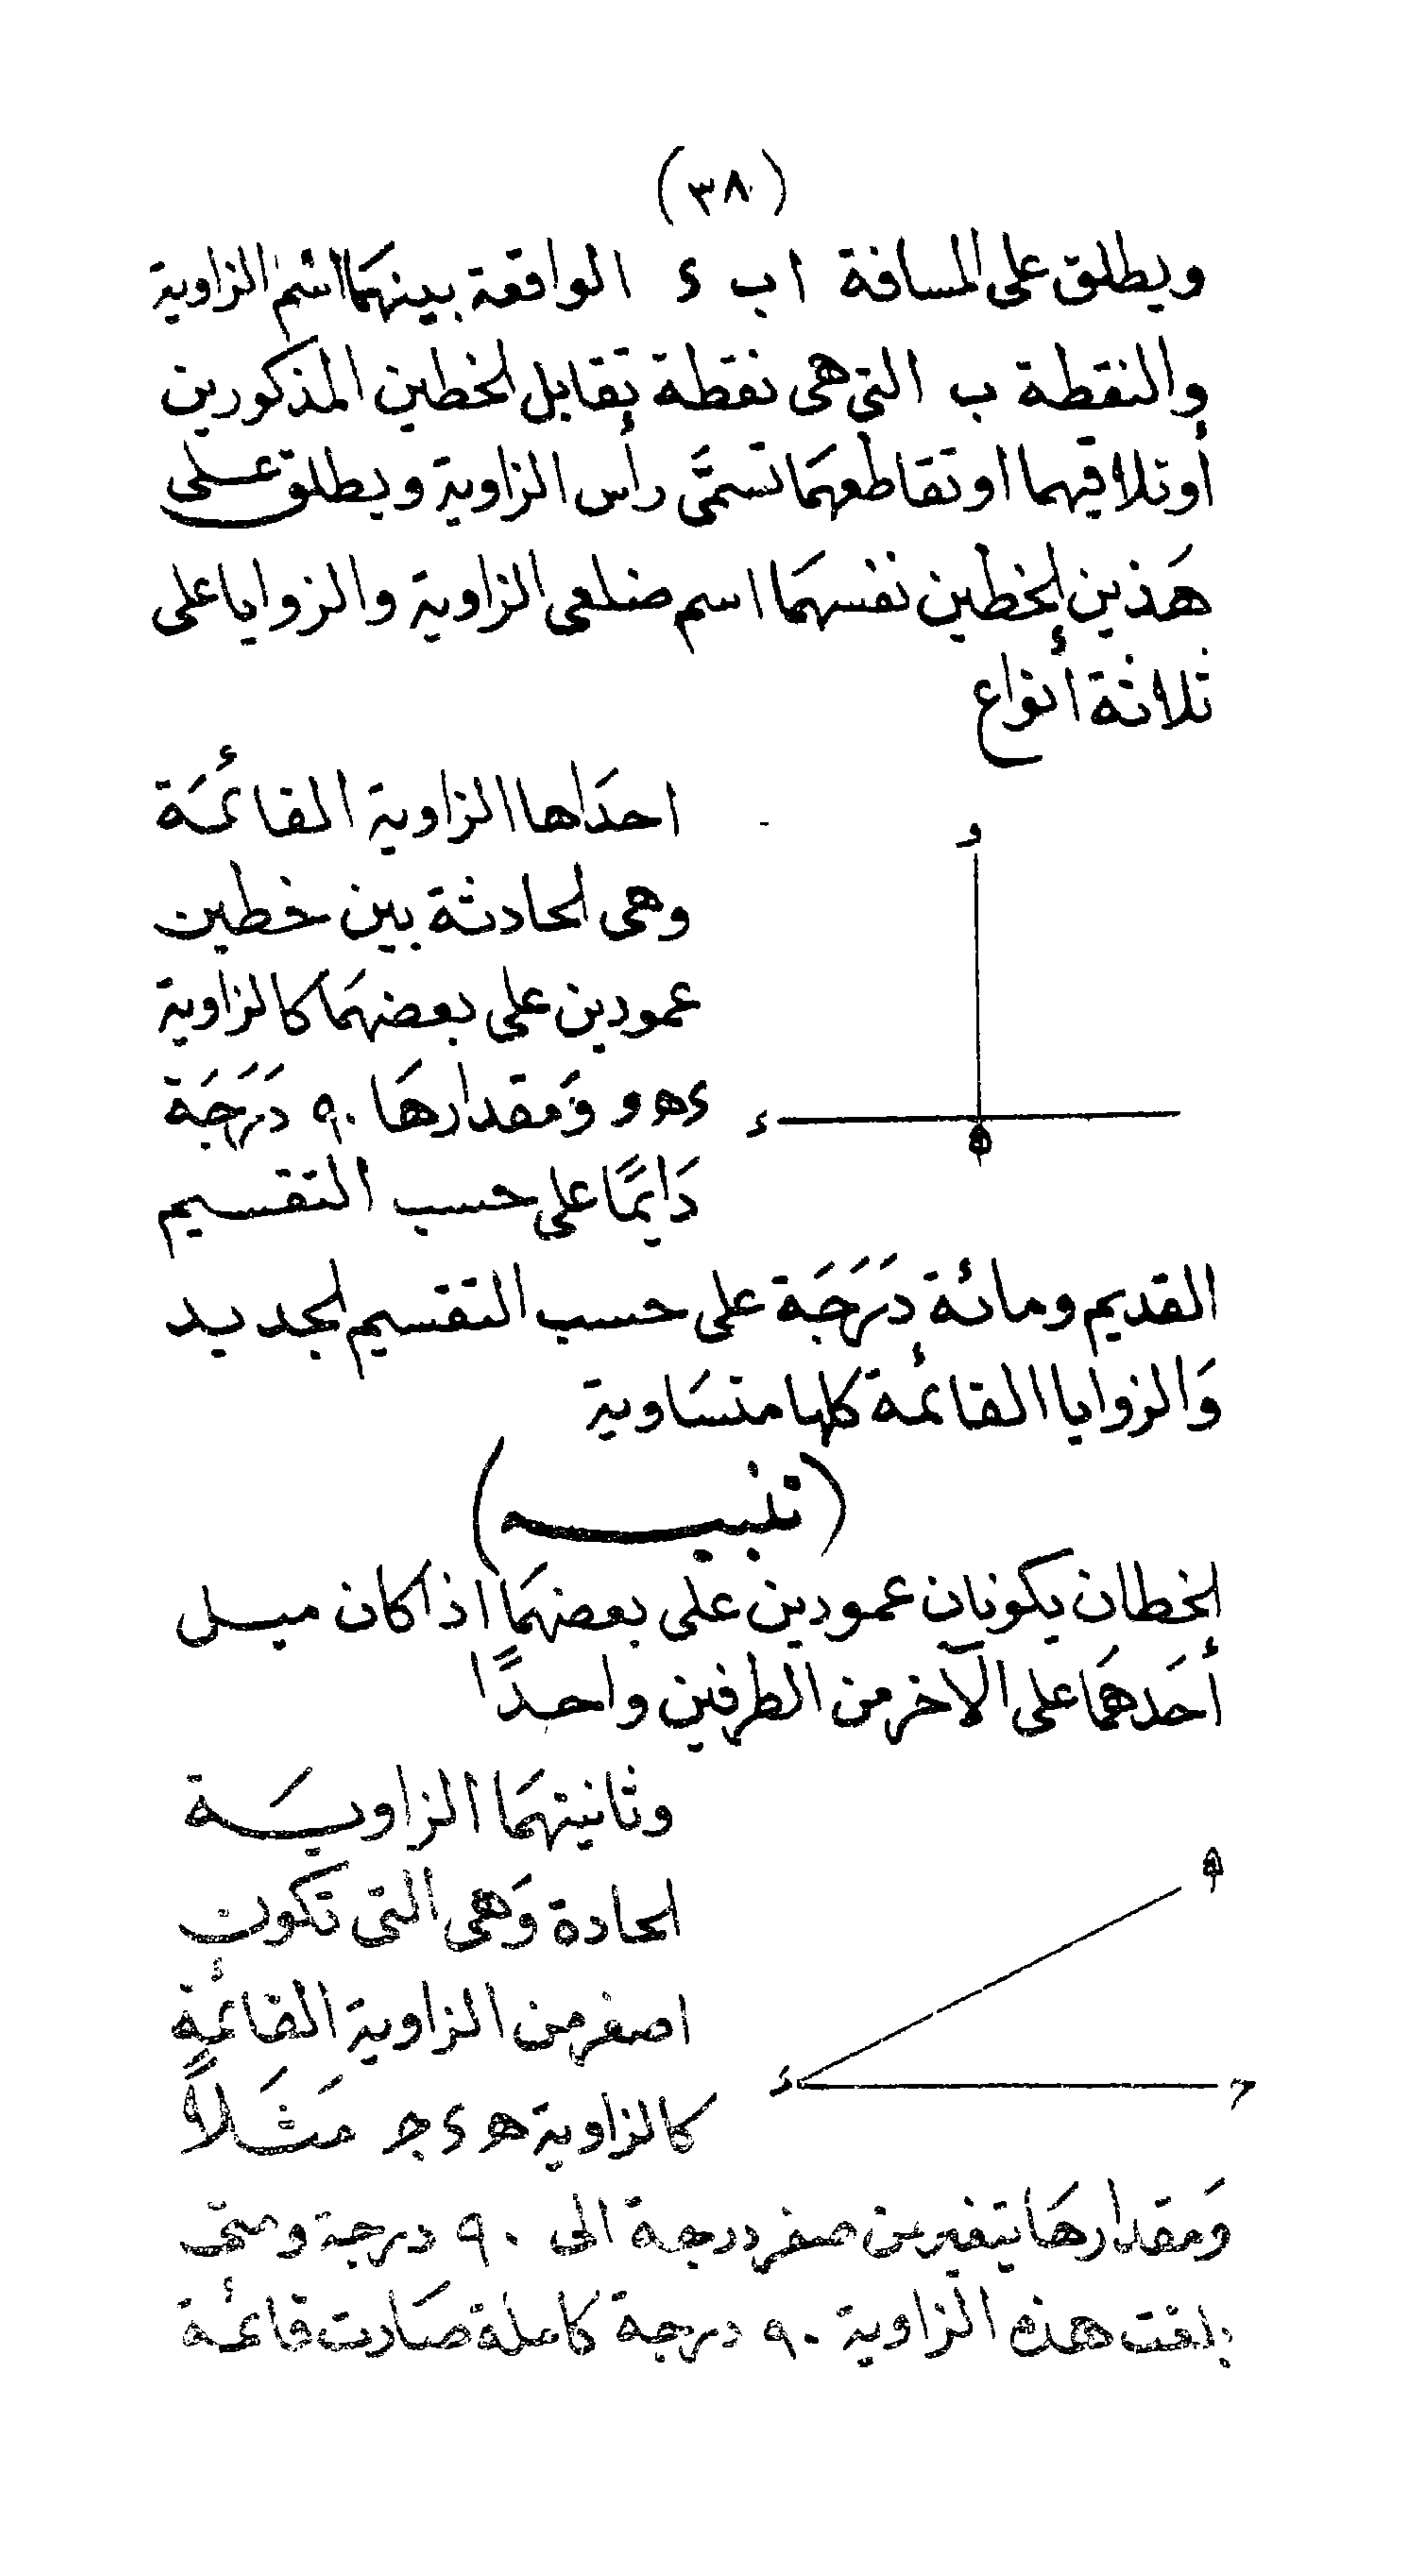 (٣٨)
ويطلق على المسافة ا ب د الواقعة بينهَما اسْم الزاوية
والنقطة ب التى هى نقطة تقابل الخطين المذكورين
أوتلاقيهما او تقاطعهمَا تسمَّى رأس الزاوية ويطلق على
هَذين الخطين نفسهمَا اسم ضلعى الزاوية والزوايا على
ثلاثة أنواع
احدَاها الزاوية القائمَة
وهى الحادثة بين خطين
عمودين على بعضهمَا كالزاوية
د ه و وَمقدارهَا ٩٠ دَرَجَة
دَايمًا على حسب التقسيم
القديم ومائة دَرَجَة على حسب التقسيم الجديد
وَالزوايا القائمة كلها متسَاوية
(تنبيه)
الخطان يكونان عمودين على بعضهمَا اذا كان ميل
أحَدهمَا على الآخر من الطرفين واحدًا
وثانيتهمَا الزاويَة
الحادة وَهى التى تكون
اصغر من الزاوية القائمة
كالزاوية ه د ج مَثَلاً
وَمقدارهَا يتغير من صفر درجة الى ٩٠ درجة ومتى
بلغت هذه الزاوية ٩٠ درجة كاملة صَارت قائمة
و
د
ه
ه
د
ح